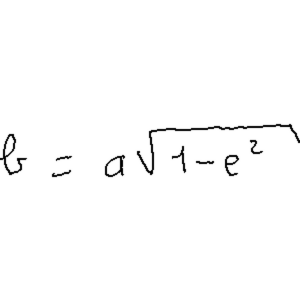 b = a√(1-e²)